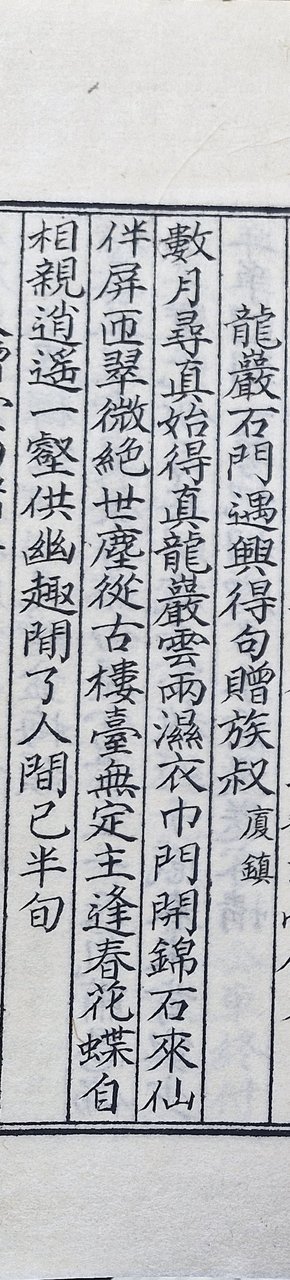 龍巖石門遇興得句贈族叔廈鎮
數月尋真始得真龍巖雲雨濕衣巾門開錦石來仙
伴屏匝翠微絕世塵從古樓臺無定主逢春花蝶自
相親逍遙一壑供幽趣閒了人間已半旬